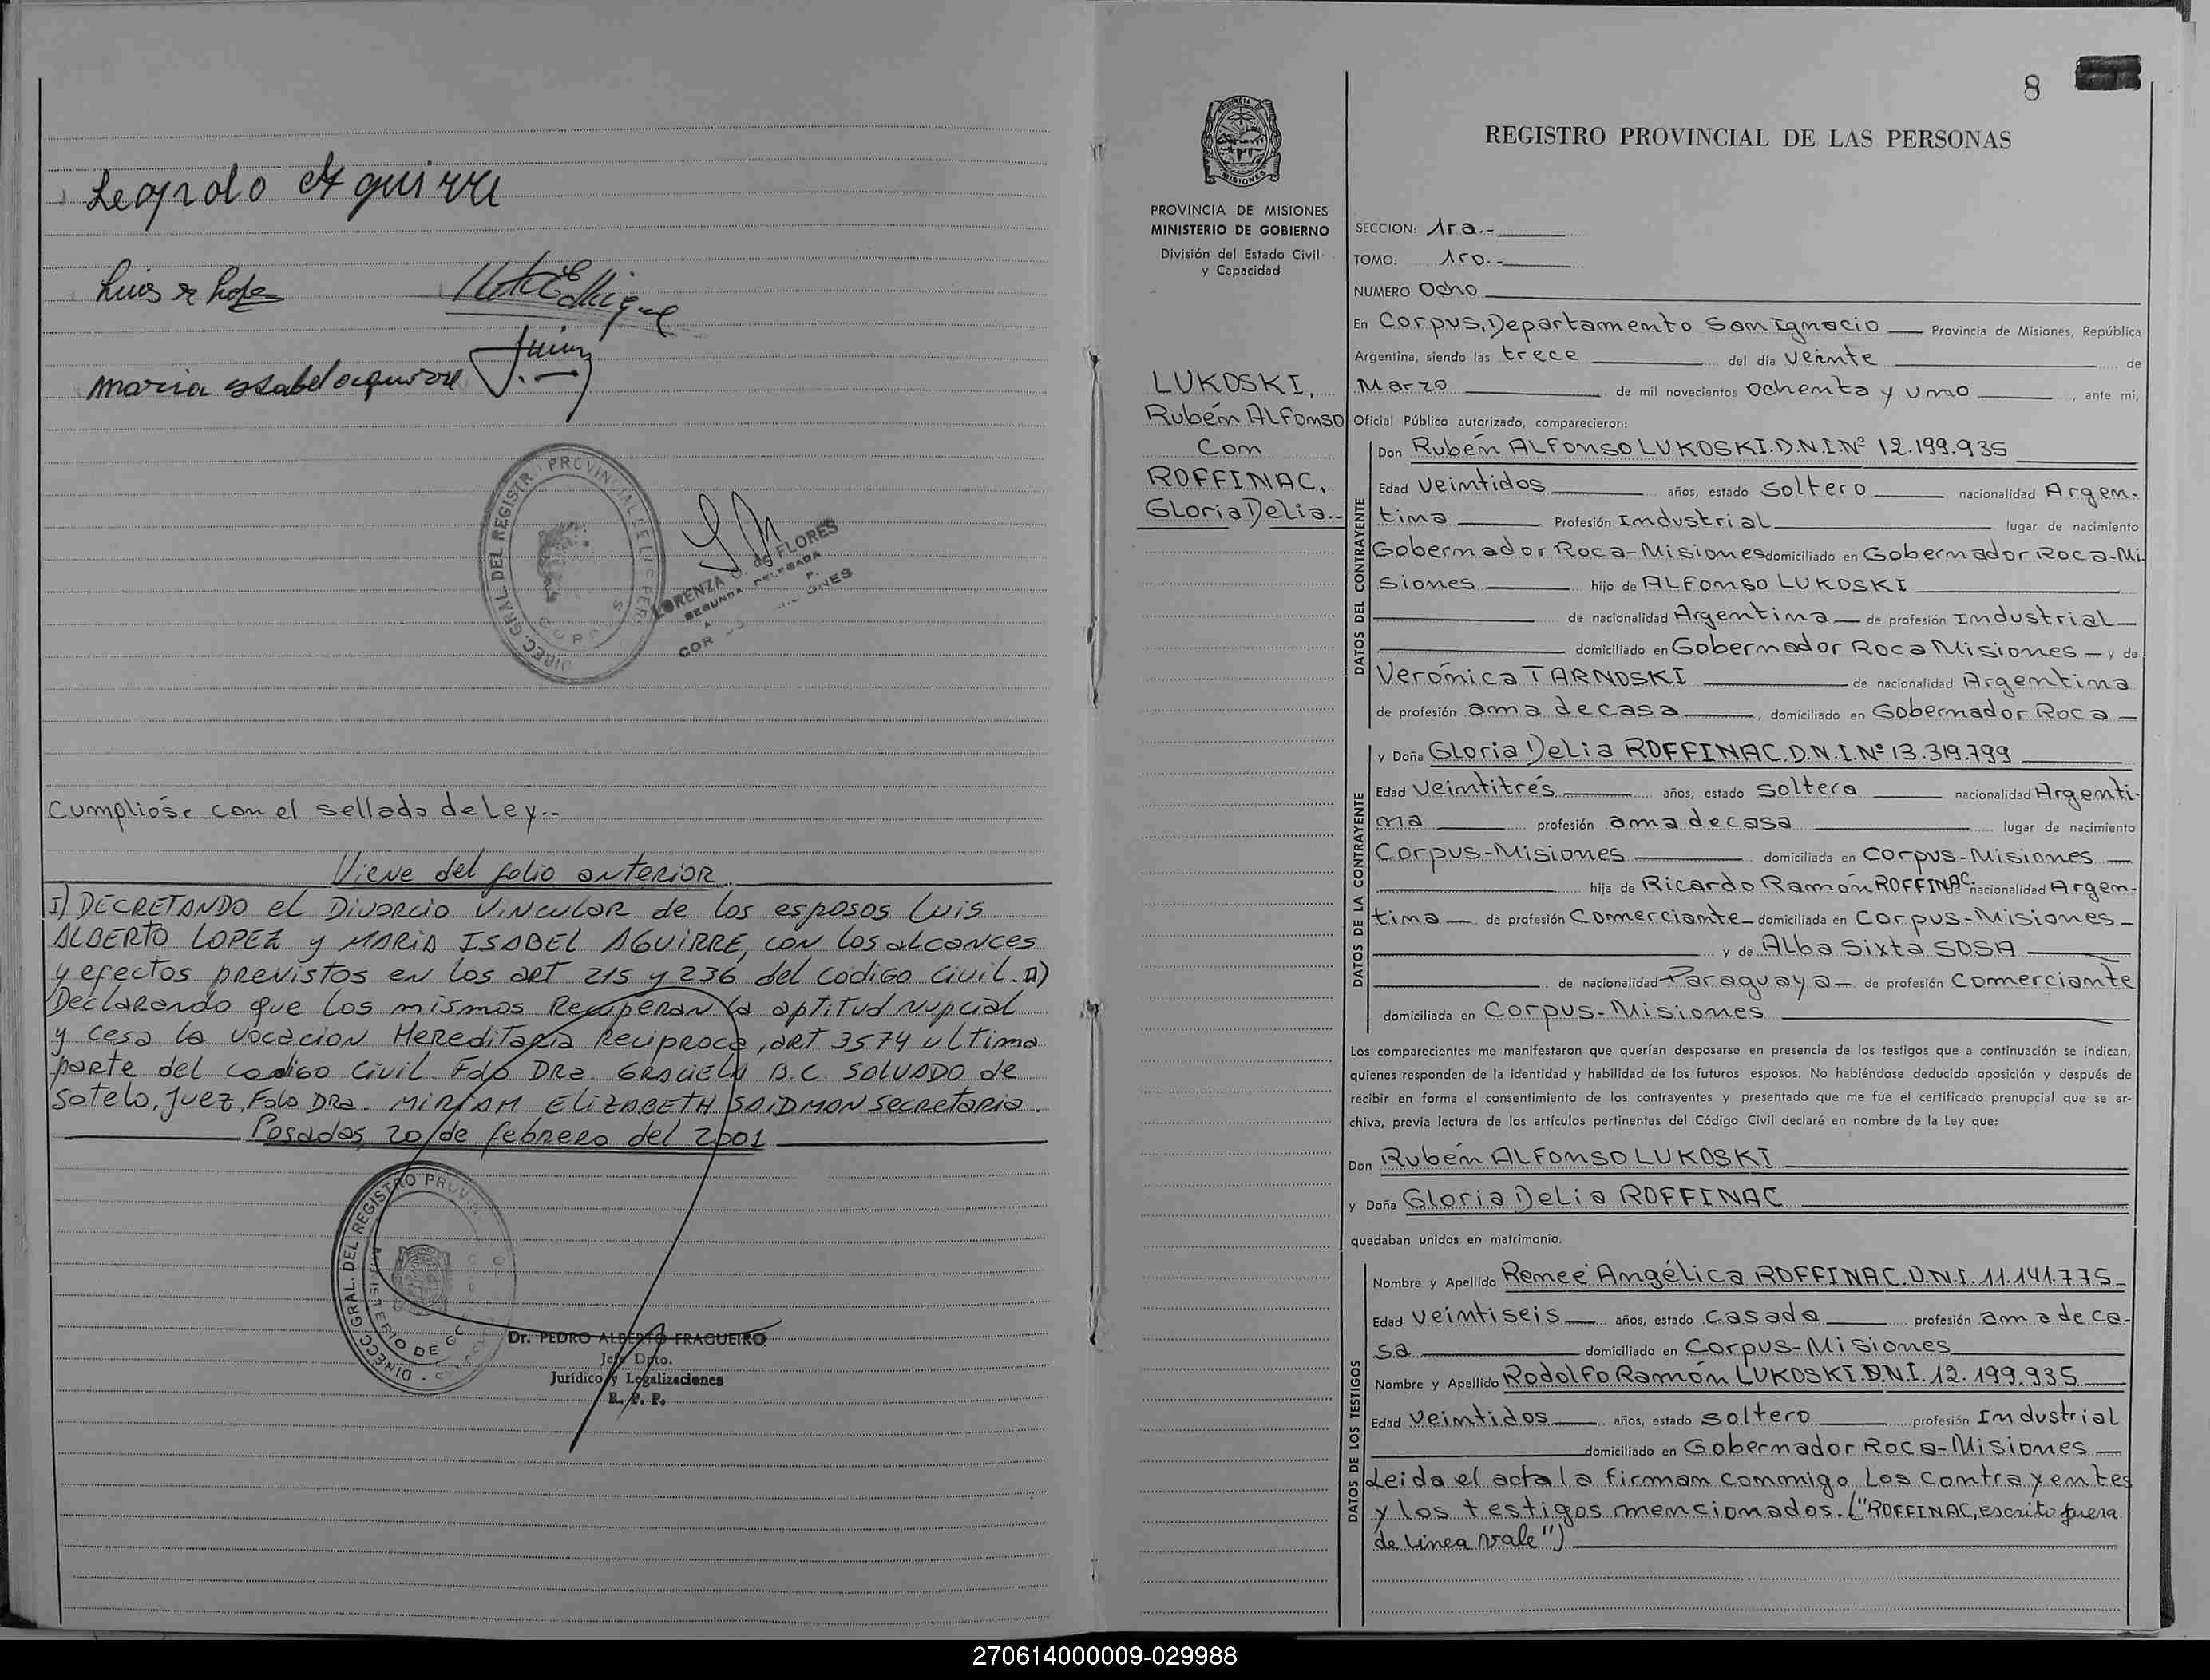 Leopoldo Aguirre
Luis A Lopez
maria ysabel aguirre
DIREC. GRAL. DEL REGISTR. PROVINCIAL DE
CORPUS
LORENZA J. de FLORES
SEGUNDA DELEGADA
Cumplióse con el sellado de Ley.-
Viene del folio anterior.
I) DECRETANDO el Divorcio Vincular de los esposos Luis
ALBERTO LOPEZ y MARIA ISABEL AGUIRRE, con los alcances
y efectos previstos en los art 215 y 236 del codigo civil. II)
Declarando que los mismos Recuperan la aptitud nupcial
y cesa la vocacion Hereditaria Reciproca, art 3574 ultima
parte del codigo Civil. Fdo DRa. GRACIELA B.C SALVADO de
Sotelo, Juez, Fdo DRa. MIRIAM ELIZABETH SAIDMAN Secretaria.
Posadas, 20 de febrero del 2001
DIRECC. GRAL. DEL REGISTRO PROVIN
MINISTERIO DE GO
Dr. PEDRO ALBERTO FRAGUEIRO
Jefe Dpto.
Jurídico y Legalizaciones
R. P. P.
8
PROVINCIA DE
MISIONES
REGISTRO PROVINCIAL DE LAS PERSONAS
PROVINCIA DE MISIONES
MINISTERIO DE GOBIERNO
División del Estado Civil
y Capacidad
LUKOSKI,
Rubén ALFonso
Con
ROFFINAC,
Gloria Delia.-
SECCION: 1ra.-
TOMO: 1ro.-
NUMERO Ocho
En Corpus, Departamento San Ignacio Provincia de Misiones, República
Argentina, siendo las trece del día veinte de
Marzo de mil novecientos ochenta y uno, ante mi,
Oficial Público autorizado, comparecieron:
DATOS DEL CONTRAYENTE
Don Rubén ALFonso LUKOSKI. D.N.I. Nº 12.199.935
Edad veintidos años, estado soltero nacionalidad Argen-
tina Profesión Industrial lugar de nacimiento
Gobernador Roca-Misiones domiciliado en Gobernador Roca-Mi
siones hijo de ALFonso LUKOSKI
de nacionalidad Argentina de profesión Industrial
domiciliado en Gobernador Roca Misiones y de
Verónica TARNOSKI de nacionalidad Argentina
de profesión ama de casa, domiciliado en Gobernador Roca
DATOS DE LA CONTRAYENTE
y Doña Gloria Delia ROFFINAC. D.N.I. Nº 13.319.799
Edad veintitrés años, estado soltera nacionalidad Argenti-
na profesión ama de casa lugar de nacimiento
Corpus-Misiones domiciliada en Corpus-Misiones
hija de Ricardo Ramón ROFFINAC nacionalidad Argen-
tina de profesión Comerciante domiciliada en Corpus-Misiones
y de Alba Sixta SOSA
de nacionalidad Paraguaya de profesión Comerciante
domiciliada en Corpus-Misiones
Los comparecientes me manifestaron que querían desposarse en presencia de los testigos que a continuación se indican,
quienes responden de la identidad y habilidad de los futuros esposos. No habiéndose deducido oposición y después de
recibir en forma el consentimiento de los contrayentes y presentado que me fue el certificado prenupcial que se ar-
chiva, previa lectura de los artículos pertinentes del Código Civil declaré en nombre de la Ley que:
Don Rubén ALFonso LUKOSKI
y Doña Gloria Delia ROFFINAC
quedaban unidos en matrimonio.
DATOS DE LOS TESTIGOS
Nombre y Apellido Reneé Angélica ROFFINAC. D.N.I. 11.141.775
Edad veintiseis años, estado casada profesión ama de ca-
sa domiciliado en Corpus-Misiones
Nombre y Apellido Rodolfo Ramón LUKOSKI. D.N.I. 12.199.935
Edad veintidos años, estado soltero profesión Industrial
domiciliado en Gobernador Roca-Misiones
Leida el acta la firman conmigo los contrayentes
y los testigos mencionados. ("ROFFINAC, escrito fuera
de linea vale")
270614000009-029988